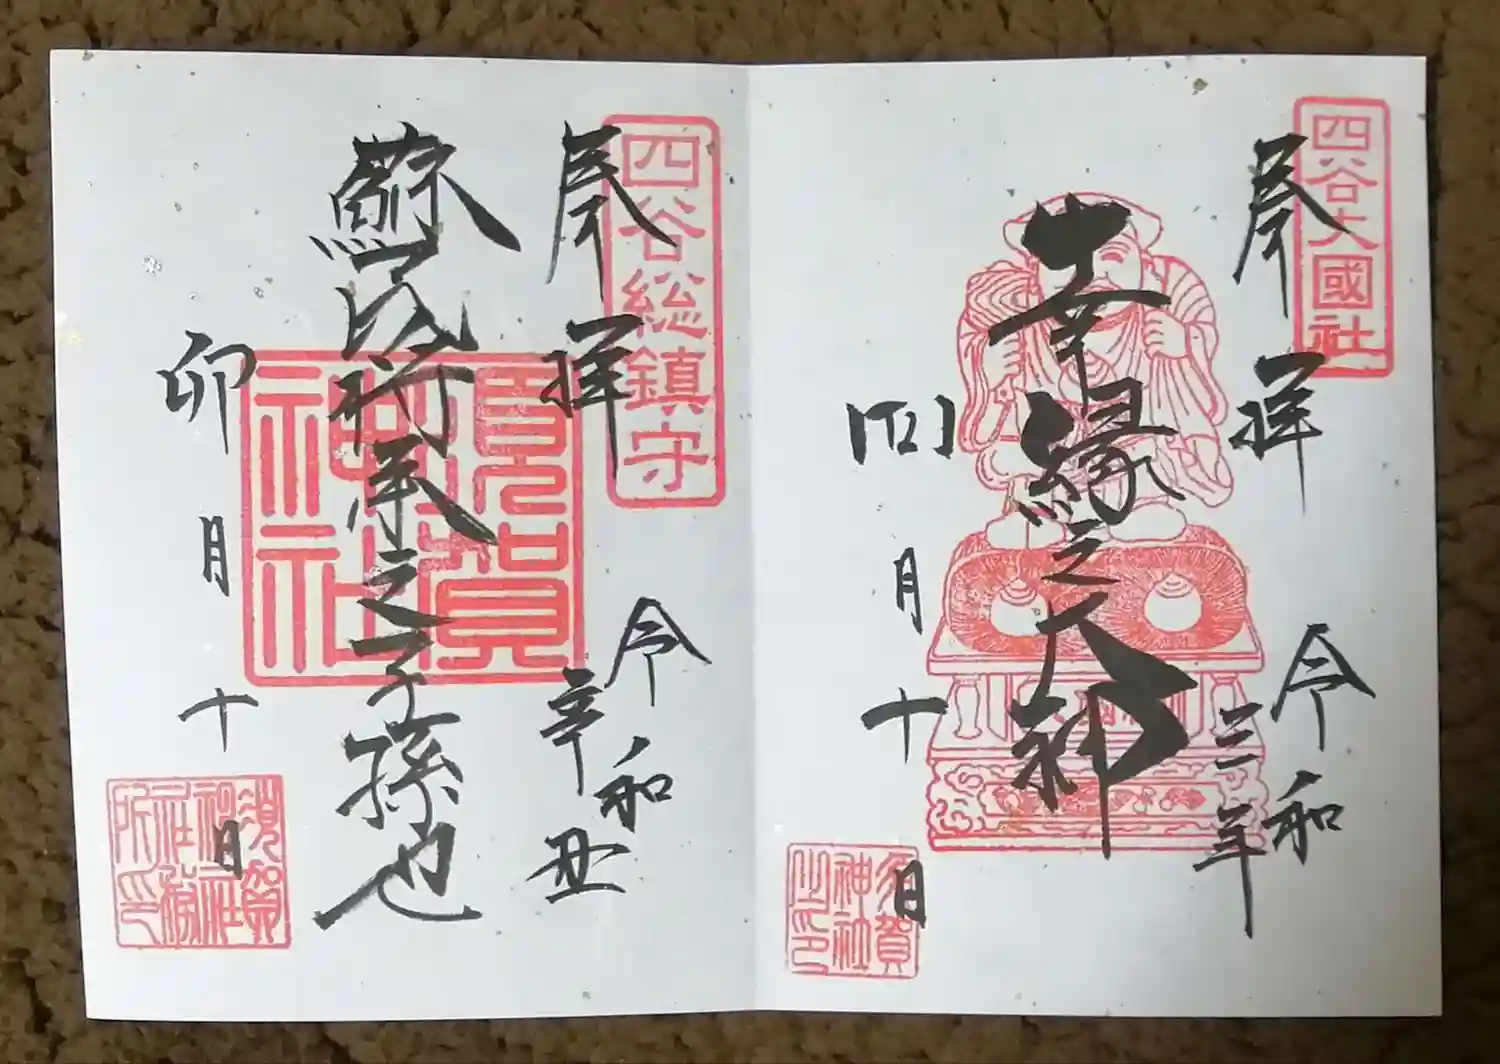 四谷大國社
奉拝
令和
三年
幸縁之大神
四月十日
須賀
神社
之印
四谷総鎮守
奉拝
令和
辛丑
蘇民将来之子孫也
須賀
神社
卯月十日
須賀
神社
社務
所印